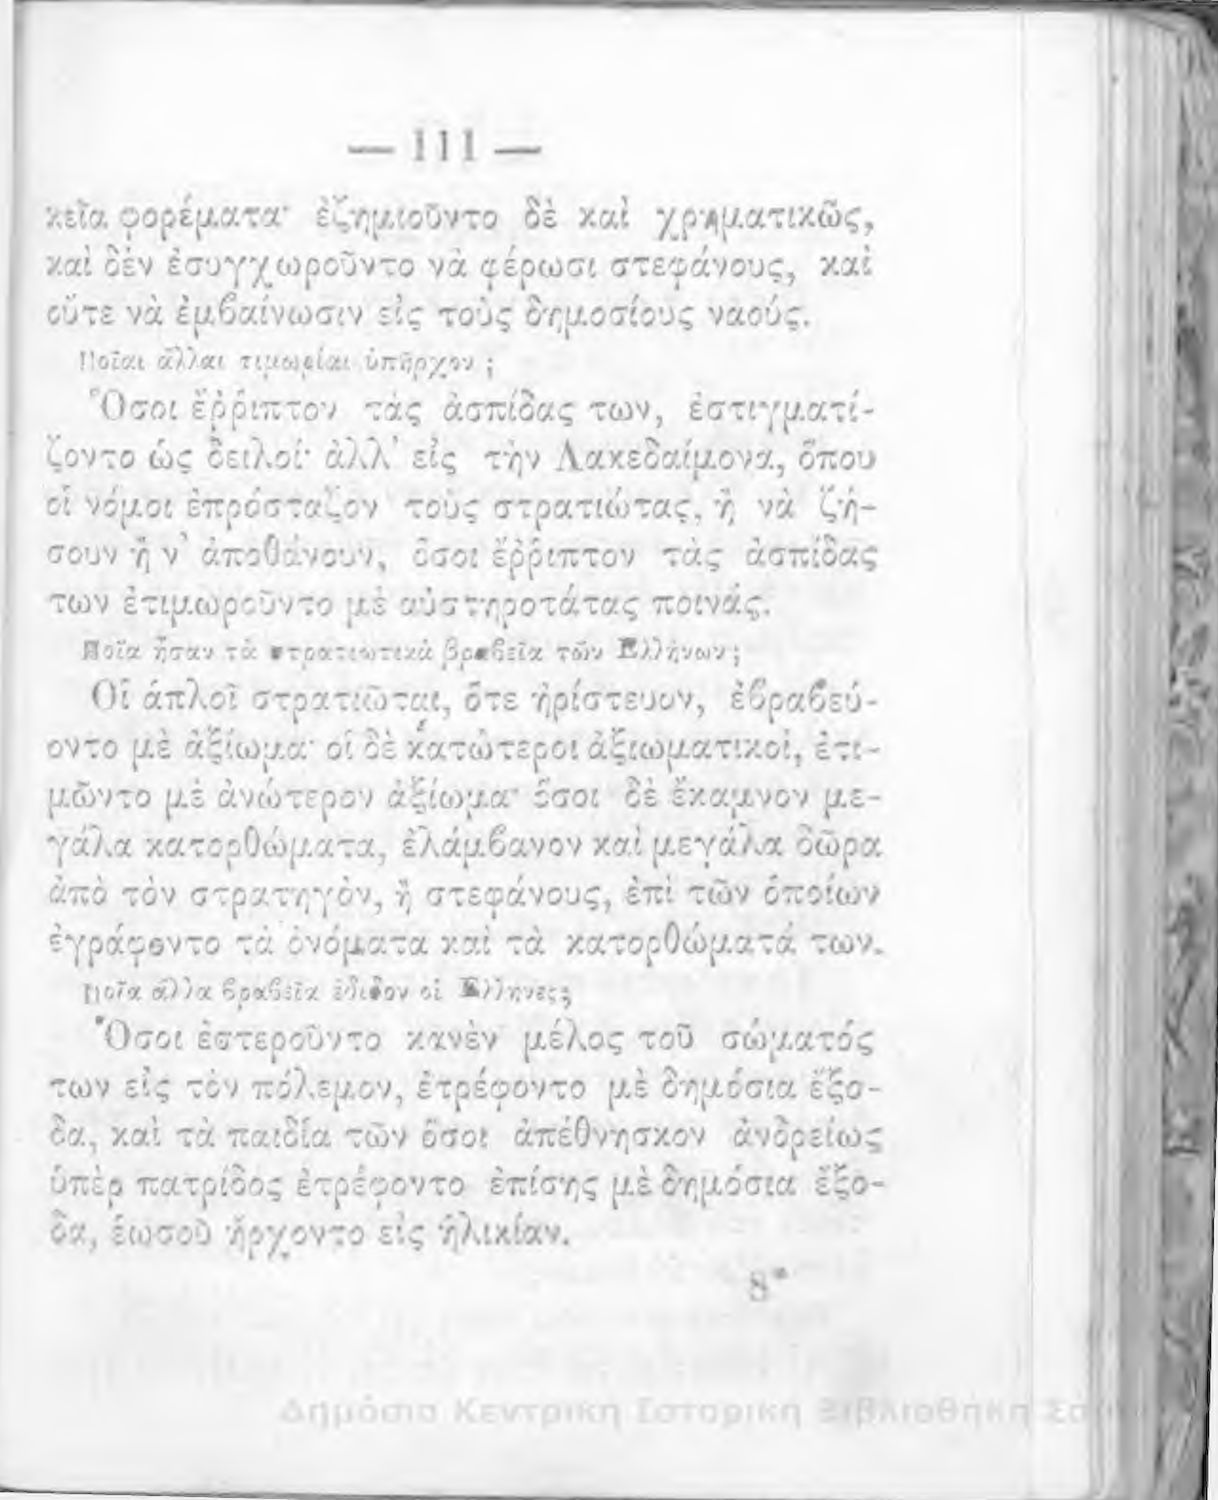 — 111 —
κεῖα φορέματα· ἐζημιοῦντο δὲ καὶ χρηματικῶς,
καὶ δὲν ἐσυγχωροῦντο νὰ φέρωσι στεφάνους, καὶ
οὔτε νὰ ἐμβαίνωσιν εἰς τοὺς δημοσίους ναούς.
Ποῖαι ἄλλαι τιμωρίαι ὑπῆρχον ;
Ὅσοι ἔῤῥιπτον τὰς ἀσπίδας των, ἐστιγματί-
ζοντο ὡς δειλοί· ἀλλ' εἰς τὴν Λακεδαίμονα, ὅπου
οἱ νόμοι ἐπρόσταζον τοὺς στρατιώτας, ἢ νὰ ζή-
σουν ἢ ν' ἀποθάνουν, ὅσοι ἔῤῥιπτον τὰς ἀσπίδας
των ἐτιμωροῦντο μὲ αὐστηροτάτας ποινάς.
Ποῖα ἦσαν τὰ στρατιωτικὰ βραβεῖα τῶν Ἑλλήνων ;
Οἱ ἁπλοῖ στρατιῶται, ὅτε ἠρίστευον, ἐβραβεύ-
οντο μὲ ἀξίωμα· οἱ δὲ κατώτεροι ἀξιωματικοὶ, ἐτι-
μῶντο μὲ ἀνώτερον ἀξίωμα· ὅσοι δὲ ἔκαμνον με-
γάλα κατορθώματα, ἐλάμβανον καὶ μεγάλα δῶρα
ἀπὸ τὸν στρατηγὸν, ἢ στεφάνους, ἐπὶ τῶν ὁποίων
ἐγράφοντο τὰ ὀνόματα καὶ τὰ κατορθώματά των.
Ποῖα ἄλλα βραβεῖα ἔδιδον οἱ Ἕλληνες ;
Ὅσοι ἐστεροῦντο κανὲν μέλος τοῦ σώματός
των εἰς τὸν πόλεμον, ἐτρέφοντο μὲ δημόσια ἔξο-
δα, καὶ τὰ παιδία τῶν ὅσοι ἀπέθνησκον ἀνδρείως
ὑπὲρ πατρίδος ἐτρέφοντο ἐπίσης μὲ δημόσια ἔξο-
δα, ἑωσοῦ ἤρχοντο εἰς ἡλικίαν.
8*
Δημόσια Κεντρική Ιστορική Βιβλιοθήκη